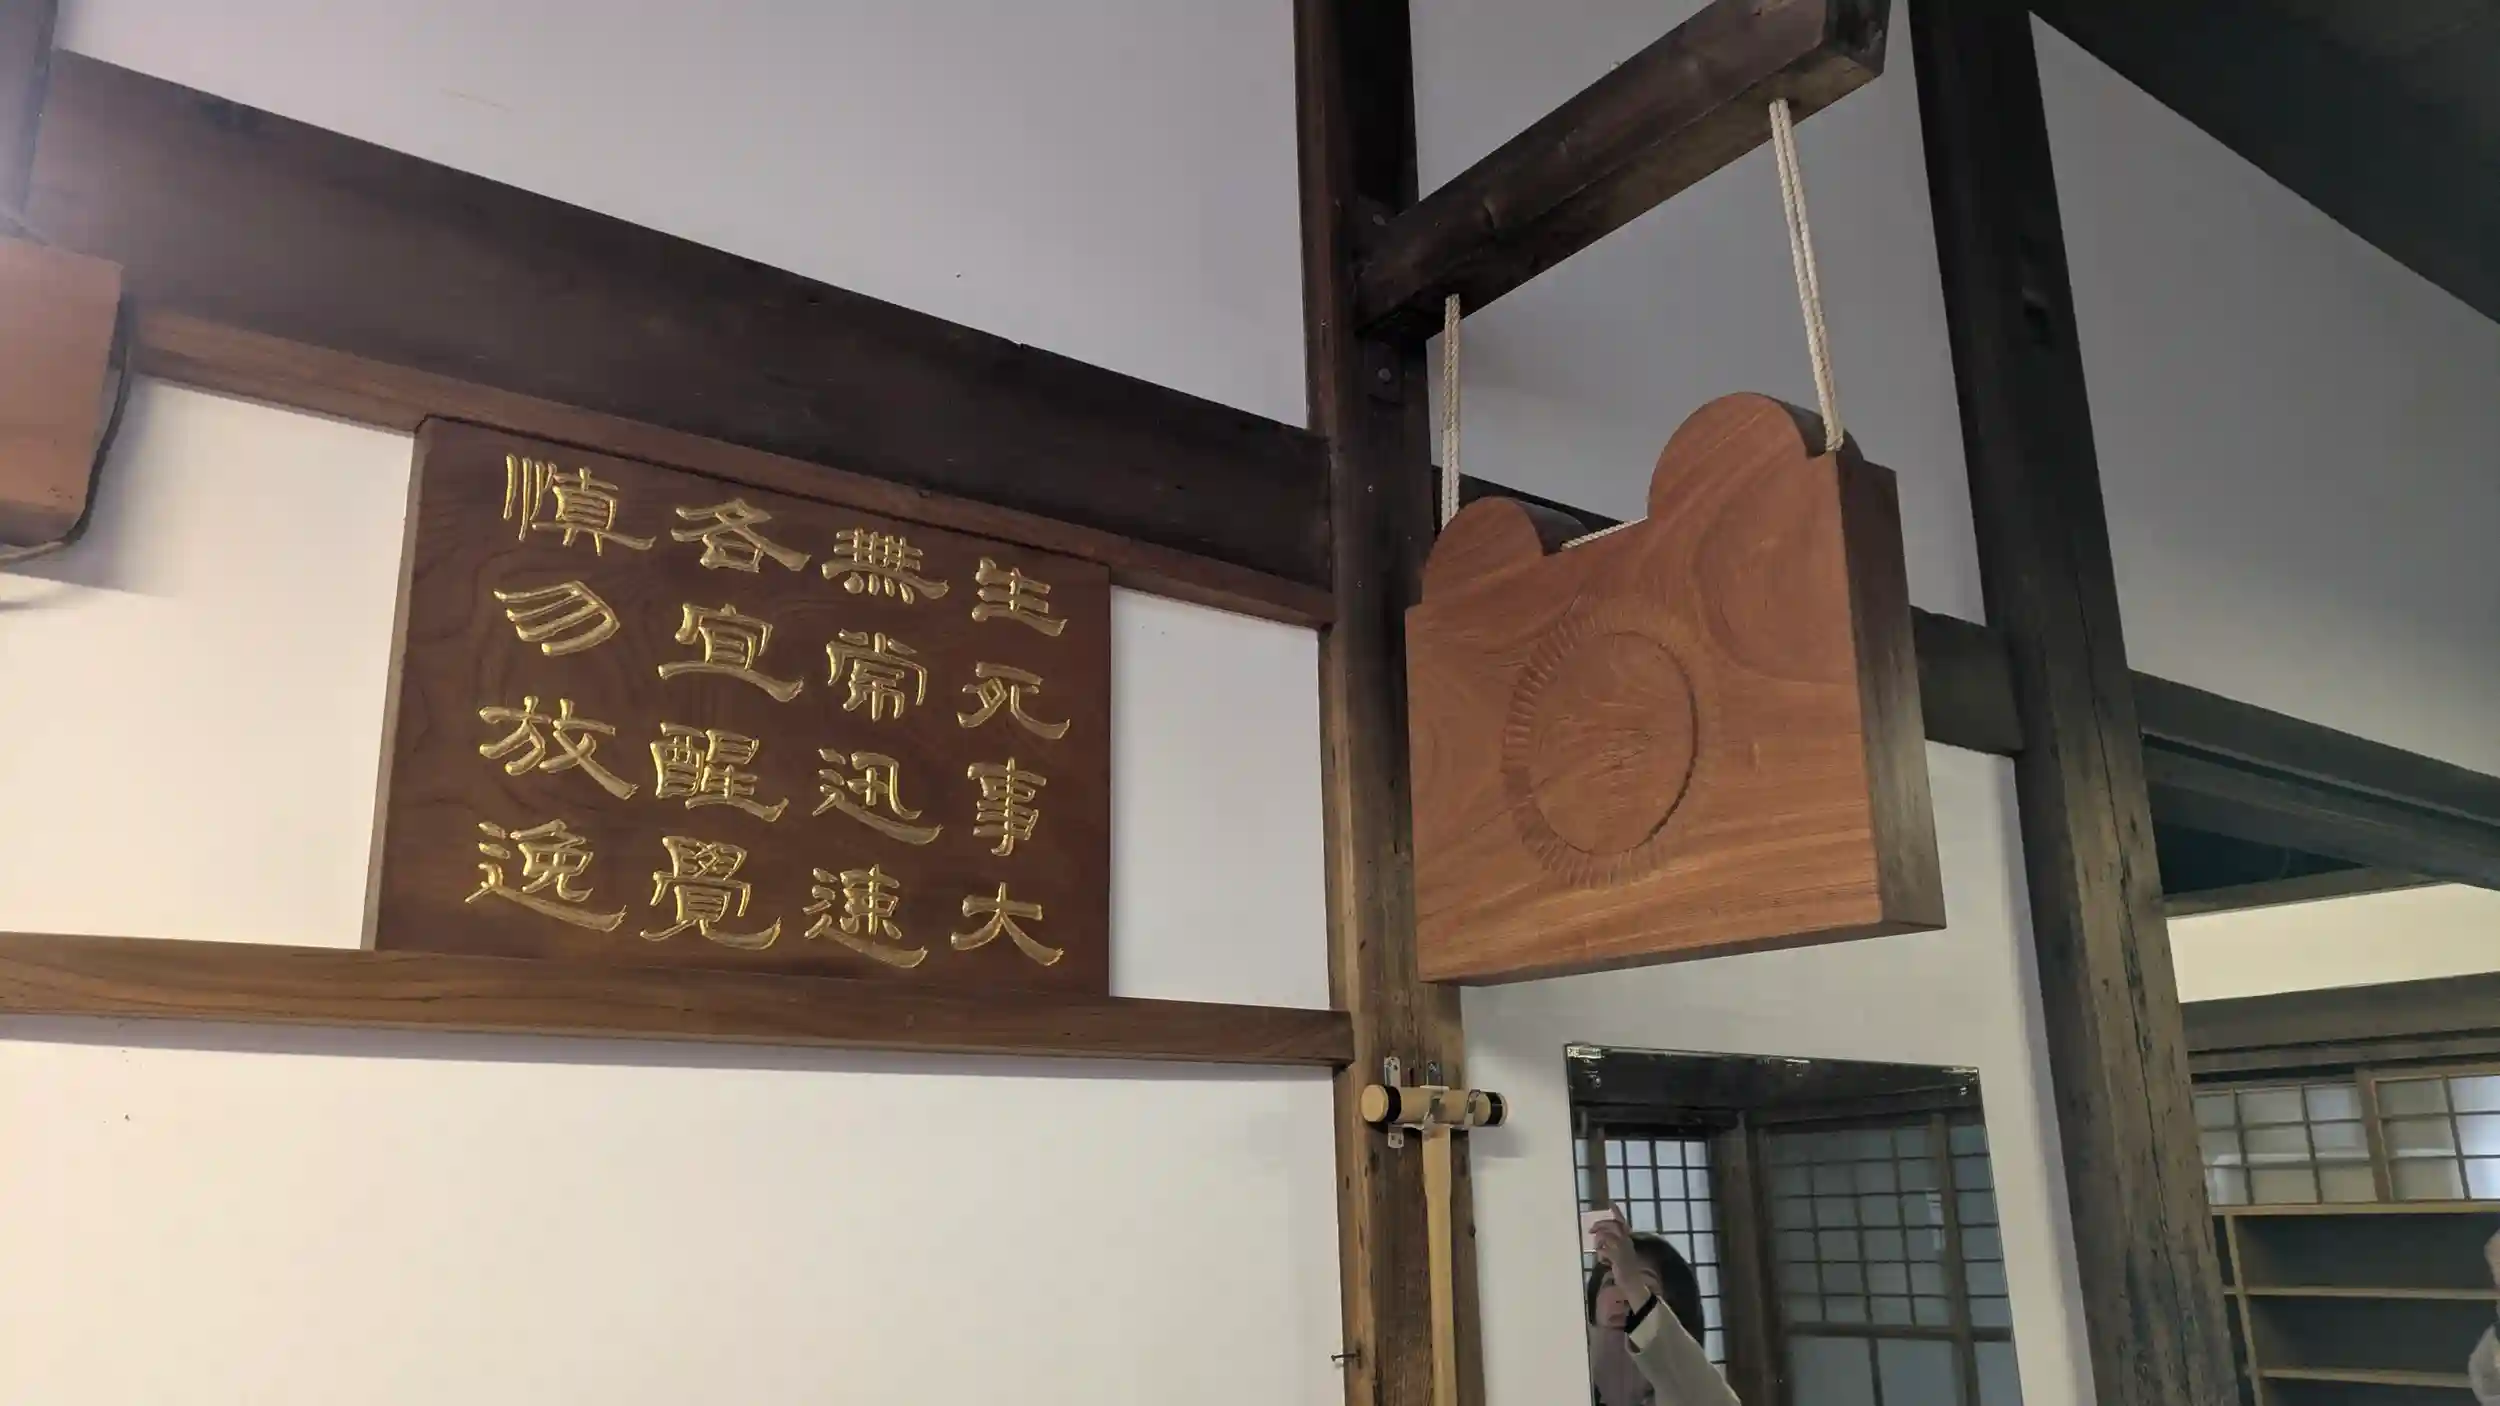 生死事大
無常迅速
各宜醒覺
慎勿放逸